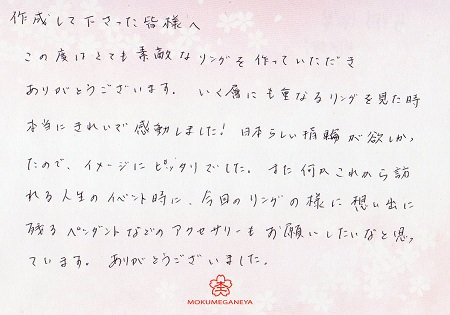 作成して下さった皆様へ
この度はとても素敵なリングを作っていただき
ありがとうございます。いく層にも重なるリングを見た時
本当にきれいで感動しました！日本らしい指輪が欲しかっ
たので、イメージにピッタリでした。また何かこれから訪
れる人生のイベント時に、今回のリングの様に想い出に
残るペンダントなどのアクセサリーもお願いしたいなと思っ
ています。ありがとうございました。
MOKUMEGANEYA